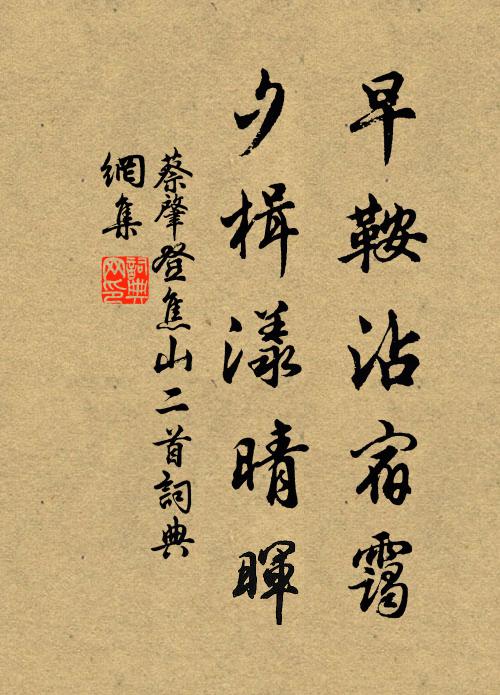 早鞍沾宿靄
夕楫漾晴暉
蔡肇登焦山二首詞典
網集
詞典網印